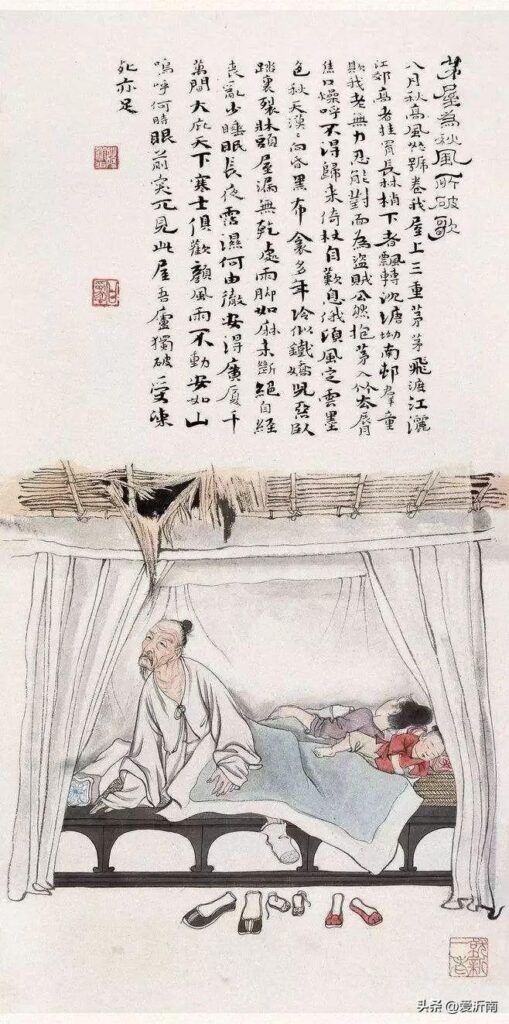 茅屋為秋風所破歌
八月秋高風怒號卷我屋上三重茅茅飛渡江灑
江郊高者挂罥長林梢下者飄轉沈塘坳南邨羣童
欺我老無力忍能對面為盜賊公然抱茅入竹去唇
焦口燥呼不得歸來倚杖自歎息俄頃風定雲墨
色秋天漠〻向昏黑布衾多年冷似鐵嬌兒惡臥
踏裏裂牀頭屋漏無乾處雨脚如麻未斷絕自經
喪亂少睡眠長夜霑濕何由徹安得廣厦千
萬間大庇天下寒士俱歡顏風雨不動安如山
嗚呼何時眼前突兀見此屋吾廬獨破受凍
死亦足
头条 @爱沂南